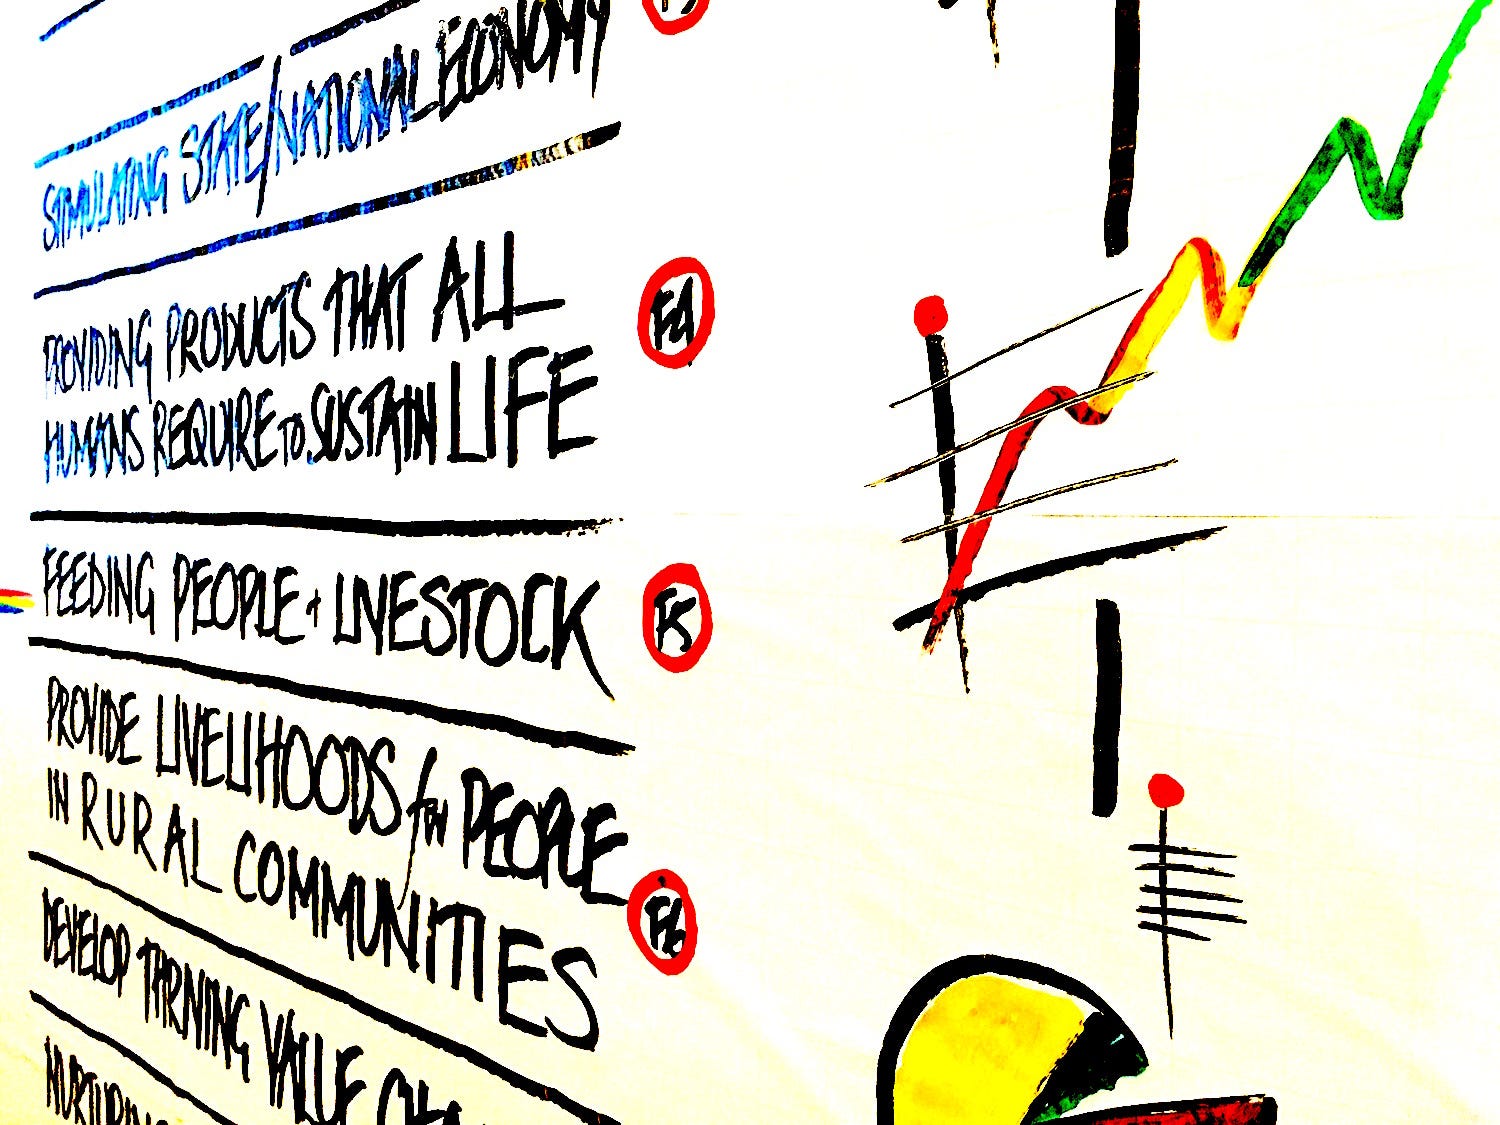 STIMULATING STATE/NATIONAL ECONOMY
PROVIDING PRODUCTS THAT ALL
F4
HUMANS REQUIRE TO SUSTAIN LIFE
FEEDING PEOPLE + LIVESTOCK
F5
PROVIDE LIVELIHOODS for PEOPLE
IN RURAL COMMUNITIES
F6
DEVELOP THRIVING VALUE